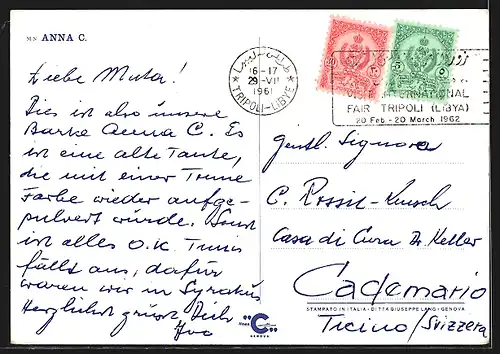 M/N ANNA C.
Liebe Muta!
Dies ist also unsere
Barke Anna C. Es
ist eine alte Tante,
die mit einer Tonne
Farbe wieder aufge-
pulvert wurde. Sonst
ist alles O.K. Tunis
fällt aus, dafür
waren wir in Syrakus
Herzlichst grüsst Dich
Ivo
16-17
29-VII
1961
TRIPOLI-LIBYE
INTERNATIONAL
FAIR TRIPOLI (LIBYA)
20 Feb - 20 March 1962
Gentl. Signora
C. Rossi-
Casa di Cura Dr. Keller
Cademario
STAMPATO IN ITALIA - DITTA GIUSEPPE LANG - GENOVA
Ticino/Svizzera
linea "C"
GENOVA